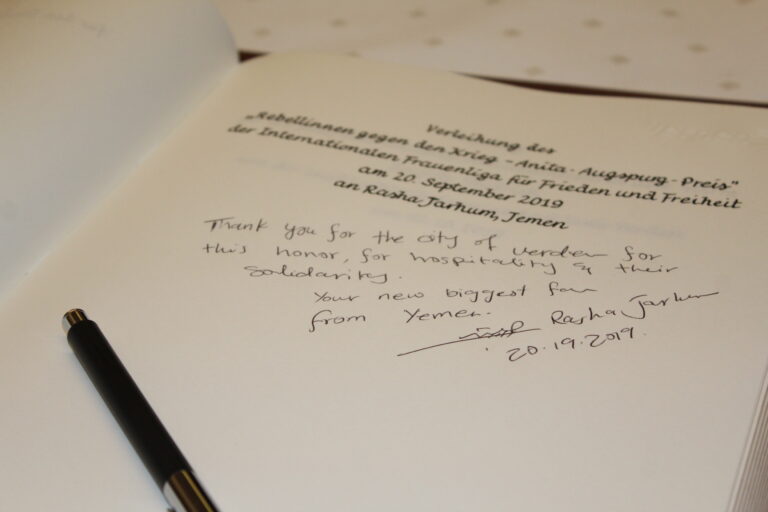 Verleihung des
„Rebellinnen gegen den Krieg - Anita-Augspurg-Preis"
der Internationalen Frauenliga für Frieden und Freiheit
am 20. September 2019
an Rasha Jarhum, Jemen
Thank you for the city of verden for
this honor, for hospitality & their
Solidarity.
Your new biggest fan
from Yemen.
Rasha Jarhum
20.19.2019.